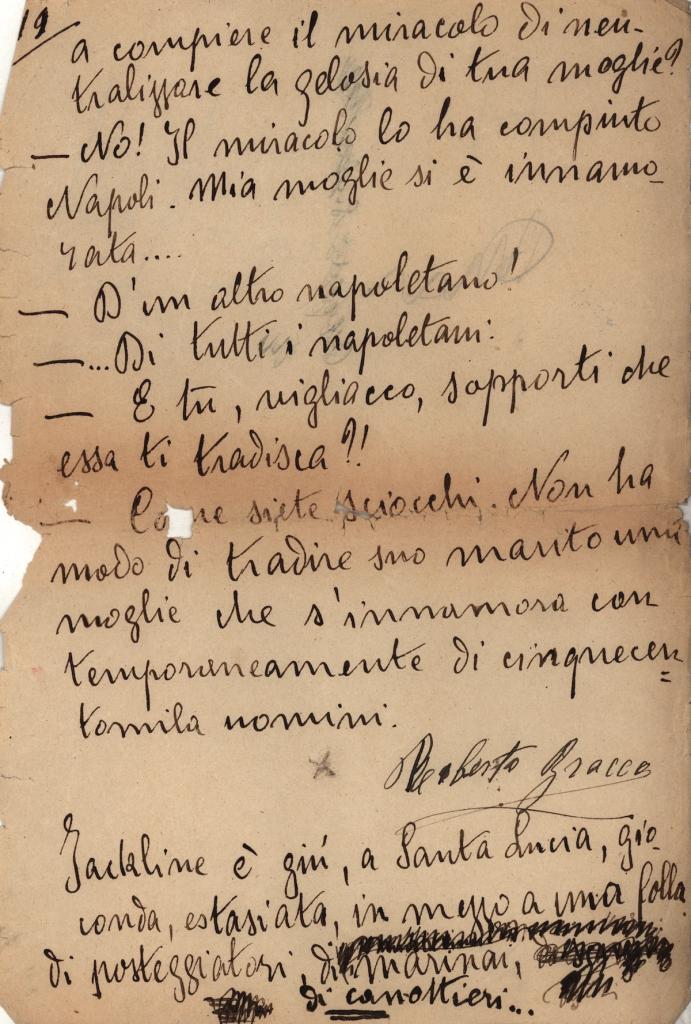 19
a compiere il miracolo di neu-
tralizzare la gelosia di tua moglie?
— No! Il miracolo lo ha compiuto
Napoli. Mia moglie si è innamo-
rata....
— D'un altro napoletano!
—...Di tutti i napoletani.
— E tu, vigliacco, sopporti che
essa ti tradisca?!
— Co me siete sciocchi. Non ha
modo di tradire suo marito una
moglie che s'innamora con
temporaneamente di cinquecen=
tomila uomini.
Roberto Bracco
Jackline è giú, a Santa Lucia, gio-
conda, estasiata, in mezzo a una folla
di posteggiatori, di marinai,
di canottieri...